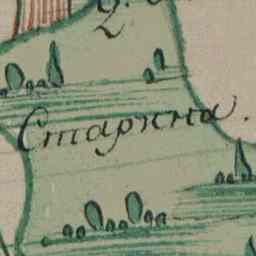 Старина.